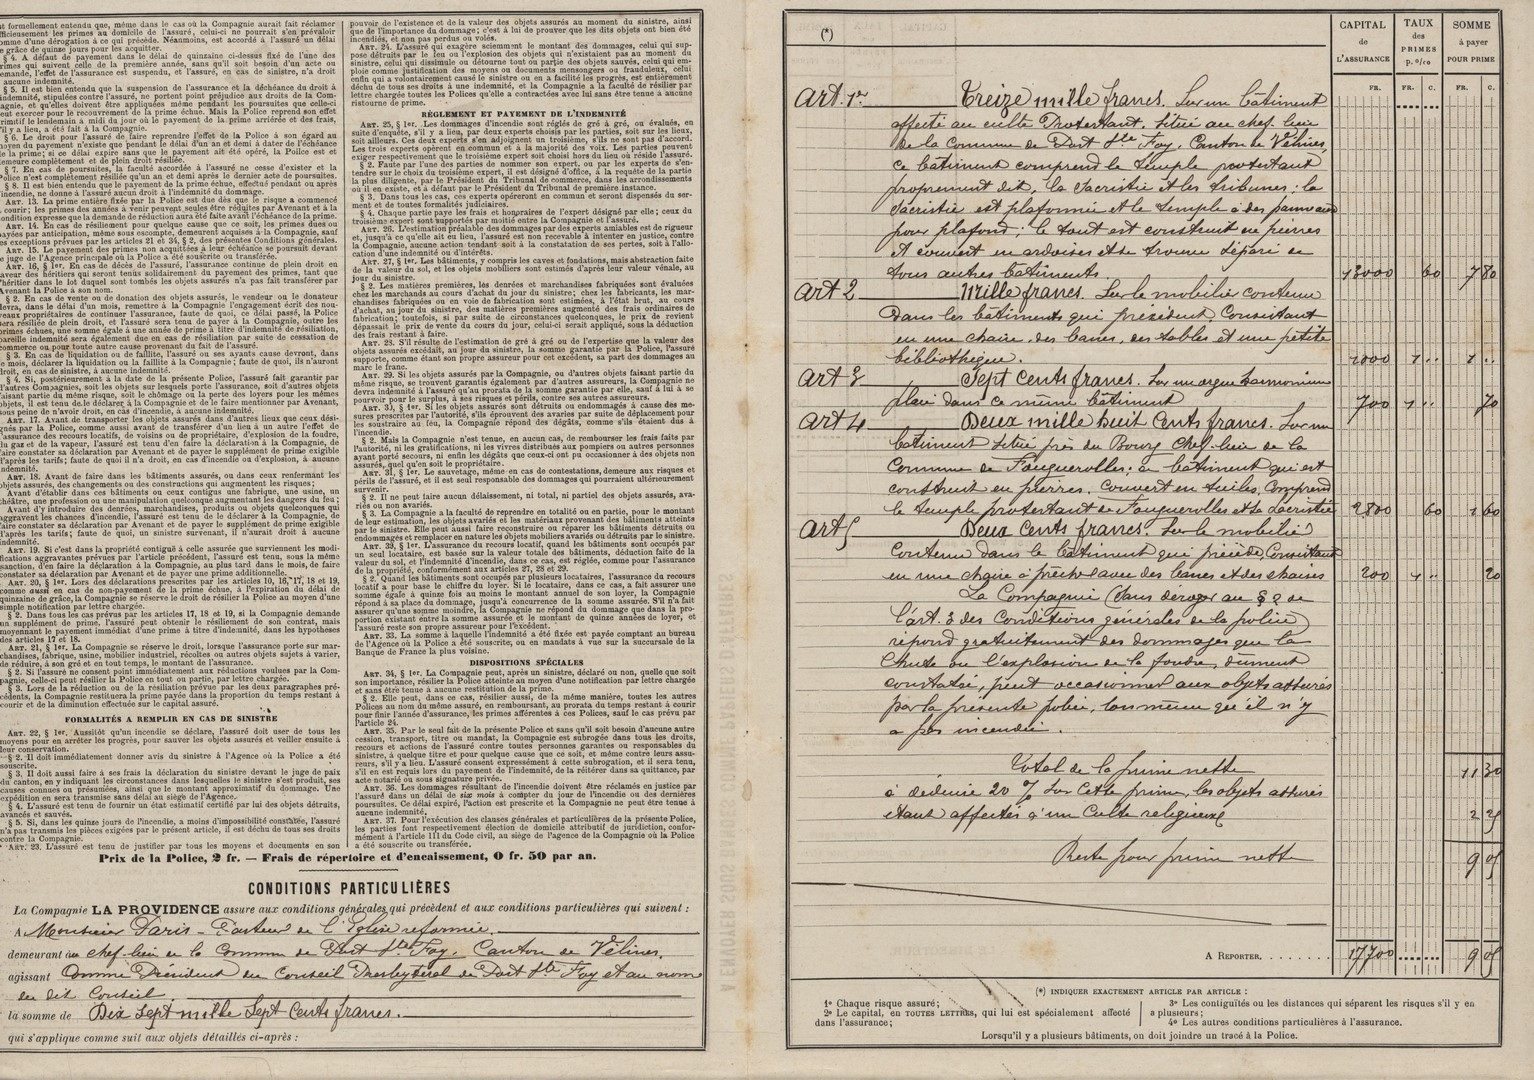 t formellement entendu que, même dans le cas où la Compagnie aurait fait réclamer
fficieusement les primes au domicile de l'assuré, celui-ci ne pourrait s'en prévaloir
omme d'une dérogation à ce qui précède. Néanmoins, est accordé à l'assuré un délai
e grâce de quinze jours pour les acquitter.
§ 4. A défaut de payement dans le délai de quinzaine ci-dessus fixé de l'une des
rimes qui suivent celle de la première année, sans qu'il soit besoin d'un acte ou
emande, l'effet de l'assurance est suspendu, et l'assuré, en cas de sinistre, n'a droit
aucune indemnité.
§ 5. Il est bien entendu que la suspension de l'assurance et la déchéance du droit à
indemnité, stipulées contre l'assuré, ne portent point préjudice aux droits de la Com-
agnie, et qu'elles doivent être appliquées même pendant les poursuites que celle-ci
eut exercer pour le recouvrement de la prime échue. Mais la Police reprend son effet
rimitif le lendemain à midi du jour où le payement de la prime arriérée et des frais,
'il y a lieu, a été fait à la Compagnie.
§ 6. Le droit pour l'assuré de faire reprendre l'effet de la Police à son égard au
moyen du payement n'existe que pendant le délai d'un an et demi à dater de l'échéance
de la prime; si ce délai expire sans que le payement ait été opéré, la Police est et
demeure complètement et de plein droit résiliée.
§ 7. En cas de poursuites, la faculté accordée à l'assuré ne cesse d'exister et la
Police n'est complètement résiliée qu'un an et demi après le dernier acte de poursuites.
§ 8. Il est bien entendu que le payement de la prime échue, effectué pendant ou après
l'incendie, ne donne à l'assuré aucun droit à l'indemnité du dommage.
ART. 13. La prime entière fixée par la Police est due dès que le risque a commencé
à courir; les primes des années à venir peuvent seules être réduites par Avenant et à la
condition expresse que la demande de réduction aura été faite avant l'échéance de la prime.
ART. 14. En cas de résiliation pour quelque cause que ce soit, les primes dues ou
payées par anticipation, même sous escompte, demeurent acquises à la Compagnie, sauf
les exceptions prévues par les articles 21 et 34, § 2, des présentes Conditions générales.
ART. 15. Le payement des primes non acquittées à leur échéance se poursuit devant
le juge de l'Agence principale où la Police a été souscrite ou transférée.
ART. 16, § 1er. En cas de décès de l'assuré, l'assurance continue de plein droit en
faveur des héritiers qui seront tenus solidairement du payement des primes, tant que
l'héritier dans le lot duquel sont tombés les objets assurés n'a pas fait transférer par
Avenant la Police à son nom.
§ 2. En cas de vente ou de donation des objets assurés, le vendeur ou le donateur
devra, dans le délai d'un mois, remettre à la Compagnie l'engagement écrit des nou-
veaux propriétaires de continuer l'assurance, faute de quoi, ce délai passé, la Police
sera résiliée de plein droit, et l'assuré sera tenu de payer à la Compagnie, outre les
primes échues, une somme égale à une année de prime à titre d'indemnité de résiliation,
pareille indemnité sera également due en cas de résiliation par suite de cessation de
commerce ou pour toute autre cause provenant du fait de l'assuré.
§ 3. En cas de liquidation ou de faillite, l'assuré ou ses ayants cause devront, dans
le mois, déclarer la liquidation ou la faillite à la Compagnie; faute de quoi, ils n'auront
droit, en cas de sinistre, à aucune indemnité.
§ 4. Si, postérieurement à la date de la présente Police, l'assuré fait garantir par
d'autres Compagnies, soit les objets sur lesquels porte l'assurance, soit d'autres objets
faisant partie du même risque, soit le chômage ou la perte des loyers pour les mêmes
objets, il est tenu de le déclarer à la Compagnie et de le faire mentionner par Avenant,
sous peine de n'avoir droit, en cas d'incendie, à aucune indemnité.
ART. 17. Avant de transporter les objets assurés dans d'autres lieux que ceux dési-
gnés par la Police, comme aussi avant de transférer d'un lieu à un autre l'effet de
l'assurance des recours locatifs, de voisins ou de propriétaire, d'explosion de la foudre,
du gaz et de la vapeur, l'assuré est tenu d'en faire la déclaration à la Compagnie, de
faire constater sa déclaration par Avenant et de payer le supplément de prime exigible
d'après les tarifs; faute de quoi il n'a droit, en cas d'incendie ou d'explosion, à aucune
indemnité.
ART. 18. Avant de faire dans les bâtiments assurés, ou dans ceux renfermant les
objets assurés, des changements ou des constructions qui augmentent les risques;
Avant d'établir dans ces bâtiments ou ceux contigus une fabrique, une usine, un
théâtre, une profession ou une manipulation quelconque augmentant les dangers du feu;
Avant d'y introduire des denrées, marchandises, produits ou objets quelconques qui
aggravent les chances d'incendie, l'assuré est tenu de le déclarer à la Compagnie, de
faire constater sa déclaration par Avenant et de payer le supplément de prime exigible
d'après les tarifs; faute de quoi, un sinistre survenant, il n'aurait droit à aucune
indemnité.
ART. 19. Si c'est dans la propriété contiguë à celle assurée que surviennent les modi-
fications aggravantes prévues par l'article précédent, l'assuré est tenu, sous la même
sanction, d'en faire la déclaration à la Compagnie, au plus tard dans le mois, de faire
constater sa déclaration par Avenant et de payer une prime additionnelle.
ART. 20, § 1er. Lors des déclarations prescrites par les articles 10, 16, 17, 18 et 19,
comme aussi en cas de non-payement de la prime échue, à l'expiration du délai de
quinzaine de grâce, la Compagnie se réserve le droit de résilier la Police au moyen d'une
simple notification par lettre chargée.
§ 2. Dans tous les cas prévus par les articles 17, 18 et 19, si la Compagnie demande
un supplément de prime, l'assuré peut obtenir le résiliement de son contrat, mais
moyennant le payement immédiat d'une prime à titre d'indemnité, dans les hypothèses
des articles 17 et 18.
ART. 21, § 1er. La Compagnie se réserve le droit, lorsque l'assurance porte sur mar-
chandises, fabrique, usine, mobilier industriel, récoltes ou autres objets sujets à varier,
de réduire, à son gré et en tout temps, le montant de l'assurance.
§ 2. Si l'assuré ne consent point immédiatement aux réductions voulues par la Com-
pagnie, celle-ci peut résilier la Police en tout ou partie, par lettre chargée.
§ 3. Lors de la réduction ou de la résiliation prévue par les deux paragraphes pré-
cédents, la Compagnie restituera la prime payée dans la proportion du temps restant à
courir et de la diminution effectuée sur le capital assuré.
FORMALITÉS A REMPLIR EN CAS DE SINISTRE
ART. 22, § 1er. Aussitôt qu'un incendie se déclare, l'assuré doit user de tous les
moyens pour en arrêter les progrès, pour sauver les objets assurés et veiller ensuite à
leur conservation.
§ 2. Il doit immédiatement donner avis du sinistre à l'Agence où la Police a été
souscrite.
§ 3. Il doit aussi faire à ses frais la déclaration du sinistre devant le juge de paix
du canton, en y indiquant les circonstances dans lesquelles le sinistre s'est produit, ses
causes connues ou présumées, ainsi que le montant approximatif du dommage. Une
expédition en sera transmise sans délai au siège de l'Agence.
§ 4. L'assuré est tenu de fournir un état estimatif certifié par lui des objets détruits,
avancés et sauvés.
§ 5. Si, dans les quinze jours de l'incendie, à moins d'impossibilité constatée, l'assuré
n'a pas transmis les pièces exigées par le présent article, il est déchu de tous ses droits
contre la Compagnie.
ART. 23. L'assuré est tenu de justifier par tous les moyens et documents en son
pouvoir de l'existence et de la valeur des objets assurés au moment du sinistre, ainsi
que de l'importance du dommage; c'est à lui de prouver que les dits objets ont bien été
incendiés, et non pas perdus ou volés.
ART. 24. L'assuré qui exagère sciemment le montant des dommages, celui qui sup-
pose détruits par le feu ou l'explosion des objets qui n'existaient pas au moment du
sinistre, celui qui dissimule ou détourne tout ou partie des objets sauvés, celui qui em-
ploie comme justification des moyens ou documents mensongers ou frauduleux, celui
enfin qui a volontairement causé le sinistre ou en a facilité les progrès, est entièrement
déchu de tous ses droits à une indemnité, et la Compagnie a la faculté de résilier par
lettre chargée toutes les Polices qu'elle a contractées avec lui sans être tenue à aucune
ristourne de prime.
RÈGLEMENT ET PAYEMENT DE L'INDEMNITÉ
ART. 25, § 1er. Les dommages d'incendie sont réglés de gré à gré, ou évalués, en
suite d'enquête, s'il y a lieu, par deux experts choisis par les parties, soit sur les lieux,
soit ailleurs. Ces deux experts s'en adjoignent un troisième, s'ils ne sont pas d'accord.
Les trois experts opèrent en commun et à la majorité des voix. Les parties peuvent
exiger respectivement que le troisième expert soit choisi hors du lieu où réside l'assuré.
§ 2. Faute par l'une des parties de nommer son expert, ou par les experts de s'en-
tendre sur le choix du troisième expert, il est désigné d'office, à la requête de la partie
la plus diligente, par le Président du Tribunal de commerce, dans les arrondissements
où il en existe, et à défaut par le Président du Tribunal de première instance.
§ 3. Dans tous les cas, les experts opéreront en commun et seront dispensés du ser-
ment et de toutes formalités judiciaires.
§ 4. Chaque partie paye les frais et honoraires de l'expert désigné par elle; ceux du
troisième expert sont supportés par moitié entre la Compagnie et l'assuré.
ART. 26. L'estimation préalable des dommages par des experts amiables est de rigueur
et, jusqu'à ce qu'elle ait eu lieu, l'assuré est non recevable à intenter en justice, contre
la Compagnie, aucune action tendant soit à la constatation de ses pertes, soit à l'allo-
cation d'une indemnité ou d'intérêts.
ART. 27, § 1er. Les bâtiments, y compris les caves et fondations, mais abstraction faite
de la valeur du sol, et les objets mobiliers sont estimés d'après leur valeur vénale, au
jour du sinistre.
§ 2. Les matières premières, les denrées et marchandises fabriquées sont évaluées
chez les marchands au cours d'achat du jour du sinistre; chez les fabricants, les mar-
chandises fabriquées ou en voie de fabrication sont estimées, à l'état brut, au cours
d'achat, au jour du sinistre, des matières premières augmenté des frais ordinaires de
fabrication; toutefois, si par suite de circonstances quelconques, le prix de revient
dépassait le prix de vente du cours du jour, celui-ci serait appliqué, sous la déduction
des frais restant à faire.
ART. 28. S'il résulte de l'estimation de gré à gré ou de l'expertise que la valeur des
objets assurés excédait, au jour du sinistre, la somme garantie par la Police, l'assuré
supporte, comme étant son propre assureur pour cet excédent, sa part des dommages au
marc le franc.
ART. 29. Si les objets assurés par la Compagnie, ou d'autres objets faisant partie du
même risque, se trouvent garantis également par d'autres assureurs, la Compagnie ne
devra indemnité à l'assuré qu'au prorata de la somme garantie par elle, sauf à lui à se
pourvoir pour le surplus, à ses risques et périls, contre ses autres assureurs.
ART. 30, § 1er. Si les objets assurés sont détruits ou endommagés à cause des me-
sures prescrites par l'autorité, s'ils éprouvent des avaries par suite de déplacement pour
les soustraire au feu, la Compagnie répond des dégâts, comme s'ils étaient dus à
l'incendie.
§ 2. Mais la Compagnie n'est tenue, en aucun cas, de rembourser les frais faits par
l'autorité, ni les gratifications, ni les vivres distribués aux pompiers ou autres personnes
ayant porté secours, ni enfin les dégâts que ceux-ci ont pu occasionner à des objets non
assurés, quel qu'en soit le propriétaire.
ART. 31, § 1er. Le sauvetage, même en cas de contestations, demeure aux risques et
périls de l'assuré, et il est seul responsable des dommages qui pourraient ultérieurement
survenir.
§ 2. Il ne peut faire aucun délaissement, ni total, ni partiel des objets assurés, ava-
riés ou non avariés.
§ 3. La Compagnie a la faculté de reprendre en totalité ou en partie, pour le montant
de leur estimation, les objets avariés et les matériaux provenant des bâtiments atteints
par le sinistre. Elle peut aussi faire reconstruire ou réparer les bâtiments détruits ou
endommagés et remplacer en nature les objets mobiliers avariés ou détruits par le sinistre.
§ 1er. L'assurance du recours locatif, quand les bâtiments sont occupés par
un seul locataire, est basée sur la valeur totale des bâtiments, déduction faite de la
valeur du sol, et l'indemnité d'incendie, dans ce cas, est réglée, comme pour l'assurance
de la propriété, conformément aux articles 27, 28 et 29.
§ 2. Quand les bâtiments sont occupés par plusieurs locataires, l'assurance du recours
locatif a pour base le chiffre du loyer. Si le locataire, dans ce cas, a fait assurer une
somme égale à quinze fois au moins le montant annuel de son loyer, la Compagnie
répond à sa place du dommage, jusqu'à concurrence de la somme assurée. S'il n'a fait
assurer qu'une somme moindre, la Compagnie ne répond du dommage que dans la pro-
portion existant entre la somme assurée et le montant de quinze années de loyer, et
l'assuré reste son propre assureur pour l'excédent.
ART. 33. La somme à laquelle l'indemnité a été fixée est payée comptant au bureau
de l'Agence où la Police a été souscrite, ou en mandats à vue sur la succursale de la
Banque de France la plus voisine.
DISPOSITIONS SPÉCIALES
ART. 34, § 1er. La Compagnie peut, après un sinistre, déclaré ou non, quelle que soit
son importance, résilier la Police atteinte au moyen d'une notification par lettre chargée
et sans être tenue à aucune restitution de prime.
§ 2. Elle peut, dans ce cas, résilier aussi, de la même manière, toutes les autres
Polices au nom du même assuré, en remboursant, au prorata du temps restant à courir
pour finir l'année d'assurance, les primes afférentes à ces Polices, sauf le cas prévu par
l'article 24.
ART. 35. Par le seul fait de la présente Police et sans qu'il soit besoin d'aucune autre
cession, transport, titre ou mandat, la Compagnie est subrogée dans tous les droits,
recours et actions de l'assuré contre toutes personnes garantes ou responsables du
sinistre, à quelque titre et pour quelque cause que ce soit, et même contre leurs assu-
reurs, s'il y a lieu. L'assuré consent expressément à cette subrogation, et il sera tenu,
s'il en est requis lors du payement de l'indemnité, de la réitérer dans sa quittance, par
acte notarié ou sous signature privée.
ART. 36. Les dommages résultant de l'incendie doivent être réclamés en justice par
l'assuré dans un délai de six mois à compter du jour de l'incendie ou des dernières
poursuites. Ce délai expiré, l'action est prescrite et la Compagnie ne peut être tenue à
aucune indemnité.
ART. 37. Pour l'exécution des clauses générales et particulières de la présente Police,
les parties font respectivement élection de domicile attributif de juridiction, confor-
mément à l'article 111 du Code civil, au siège de l'agence de la Compagnie où la Police
a été souscrite ou transférée.
Prix de la Police, 2 fr. — Frais de répertoire et d'encaissement, 0 fr. 50 par an.
CONDITIONS PARTICULIÈRES
La Compagnie LA PROVIDENCE assure aux conditions générales qui précèdent et aux conditions particulières qui suivent :
A Monsieur Paris - Pasteur de l'Eglise reformée.
demeurant au chef-lieu de la Commune de Port Ste Foy. Canton de Vélines,
agissant Comme Président du Conseil Presbytéral de Port Ste Foy et au nom
du dit Conseil
la somme de Dix Sept mille Sept Cents francs.
qui s'applique comme suit aux objets détaillés ci-après :
(*)
CAPITAL de L'ASSURANCE
TAUX des PRIMES p. 0/00
SOMME à payer POUR PRIME
FR. FR. C. FR. C.
Art. 1er Treize mille francs. Sur un bâtiment
affecté au culte Protestant. Situé au chef-lieu
de la Commune de Port Ste Foy, Canton de Vélines,
ce bâtiment comprend le Temple protestant
proprement dit, la Sacristie et les tribunes; la
Sacristie est plafonnée et le Temple a des panneaux
pour plafond; le tout est construit en pierres
et couvert en ardoises et se trouve séparé de
tous autres bâtiments. 13000 60 7 80
Art 2 Mille francs. Sur le mobilier contenu
dans les bâtiments qui précèdent, Consistant
en une chaire, des bancs, des tables et une petite
bibliothèque. 1000 1 .. 1 ..
Art 3 Sept Cents francs. Sur un orgue harmonium
placé dans ce même bâtiment 700 1 .. 70
Art 4 Deux mille huit Cents francs. Sur un
bâtiment situé près du Bourg Chef-lieu de la
Commune de Fougueyrolles. ce bâtiment qui est
construit en pierres, couvert en tuiles, Comprend
le temple protestant de Fougueyrolles et la Sacristie 2800 60 1 60
Art 5 Deux Cents francs. Sur le mobilier
Contenu dans le bâtiment qui précède Consistant
en une chaire à prêcher avec des bancs et des chaises 200 1 .. 20
La Compagnie (Sans déroger au § 2 de
l'art. 3 des Conditions générales de la police)
répond gratuitement des dommages que la
Chute ou l'explosion de la foudre, dûment
constatée, peut occasionner aux objets assurés
par la présente police, lors même qu'il n'y
a pas incendie.
Total de la prime nette 11 30
à déduire 20 % sur Cette prime, les objets assurés
étant affectés à un Culte religieux 2 25
Reste pour prime nette 9 05
A REPORTER. 17700 9 05
(*) INDIQUER EXACTEMENT ARTICLE PAR ARTICLE :
1° Chaque risque assuré;
2° Le capital, en TOUTES LETTRES, qui lui est spécialement affecté
dans l'assurance;
3° Les contiguïtés ou les distances qui séparent les risques s'il y en
a plusieurs;
4° Les autres conditions particulières à l'assurance.
Lorsqu'il y a plusieurs bâtiments, on doit joindre un tracé à la Police.